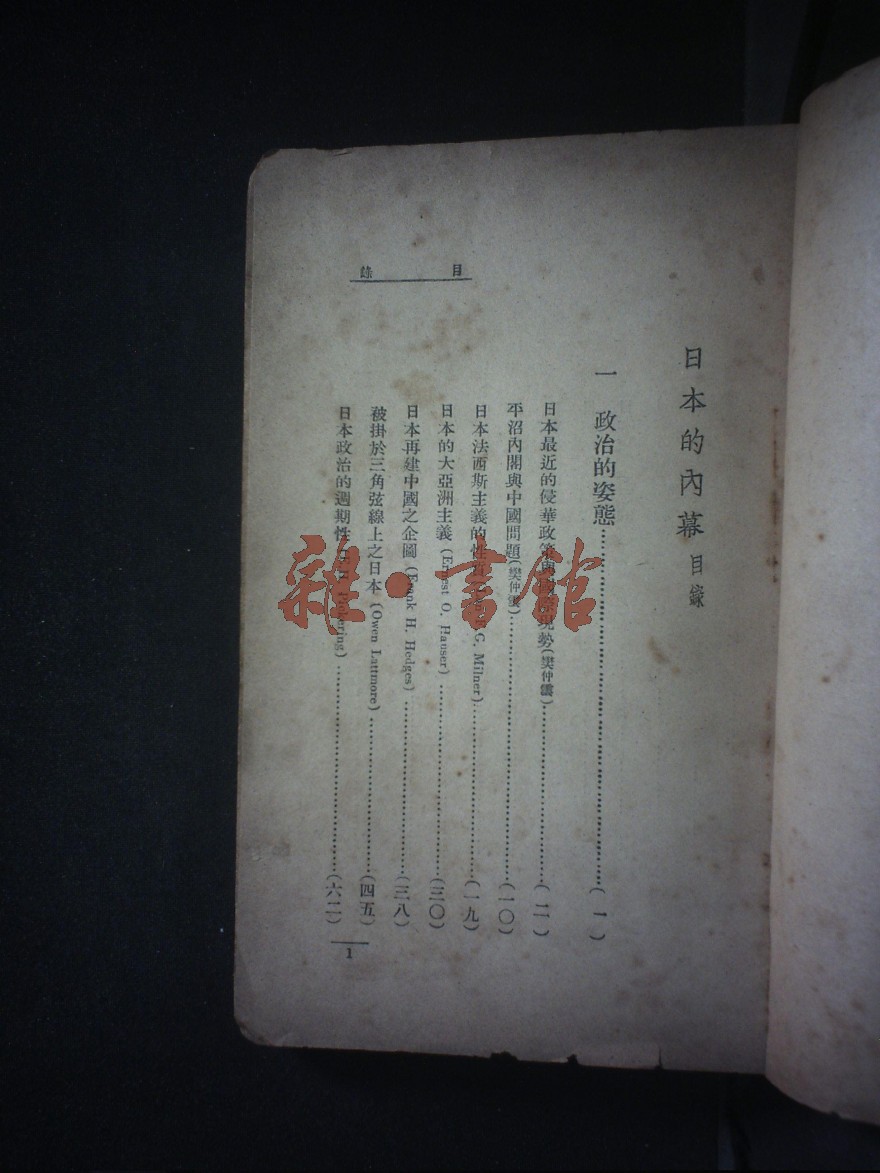 日本的內幕 目錄
一 政治的姿態……(一)
日本最近的侵華政策與國際現勢(樊仲雲)……(二)
平沼內閣與中國問題(樊仲雲)……(一〇)
日本法西斯主義的性質 G. Milner)……(一九)
日本的大亞洲主義(Ernest O. Hauser)……(三〇)
日本再建中國之企圖(Frank H. Hedges)……(三八)
被掛於三角弦線上之日本(Owen Lattmore)……(四五)
日本政治的週期性 Pickering)……(六二)
目錄
1
雜·書館